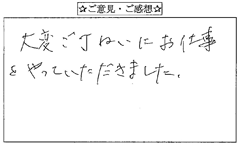 ☆ご意見・ご感想☆
大変ご丁ねいにお仕事
をやっていただきました。